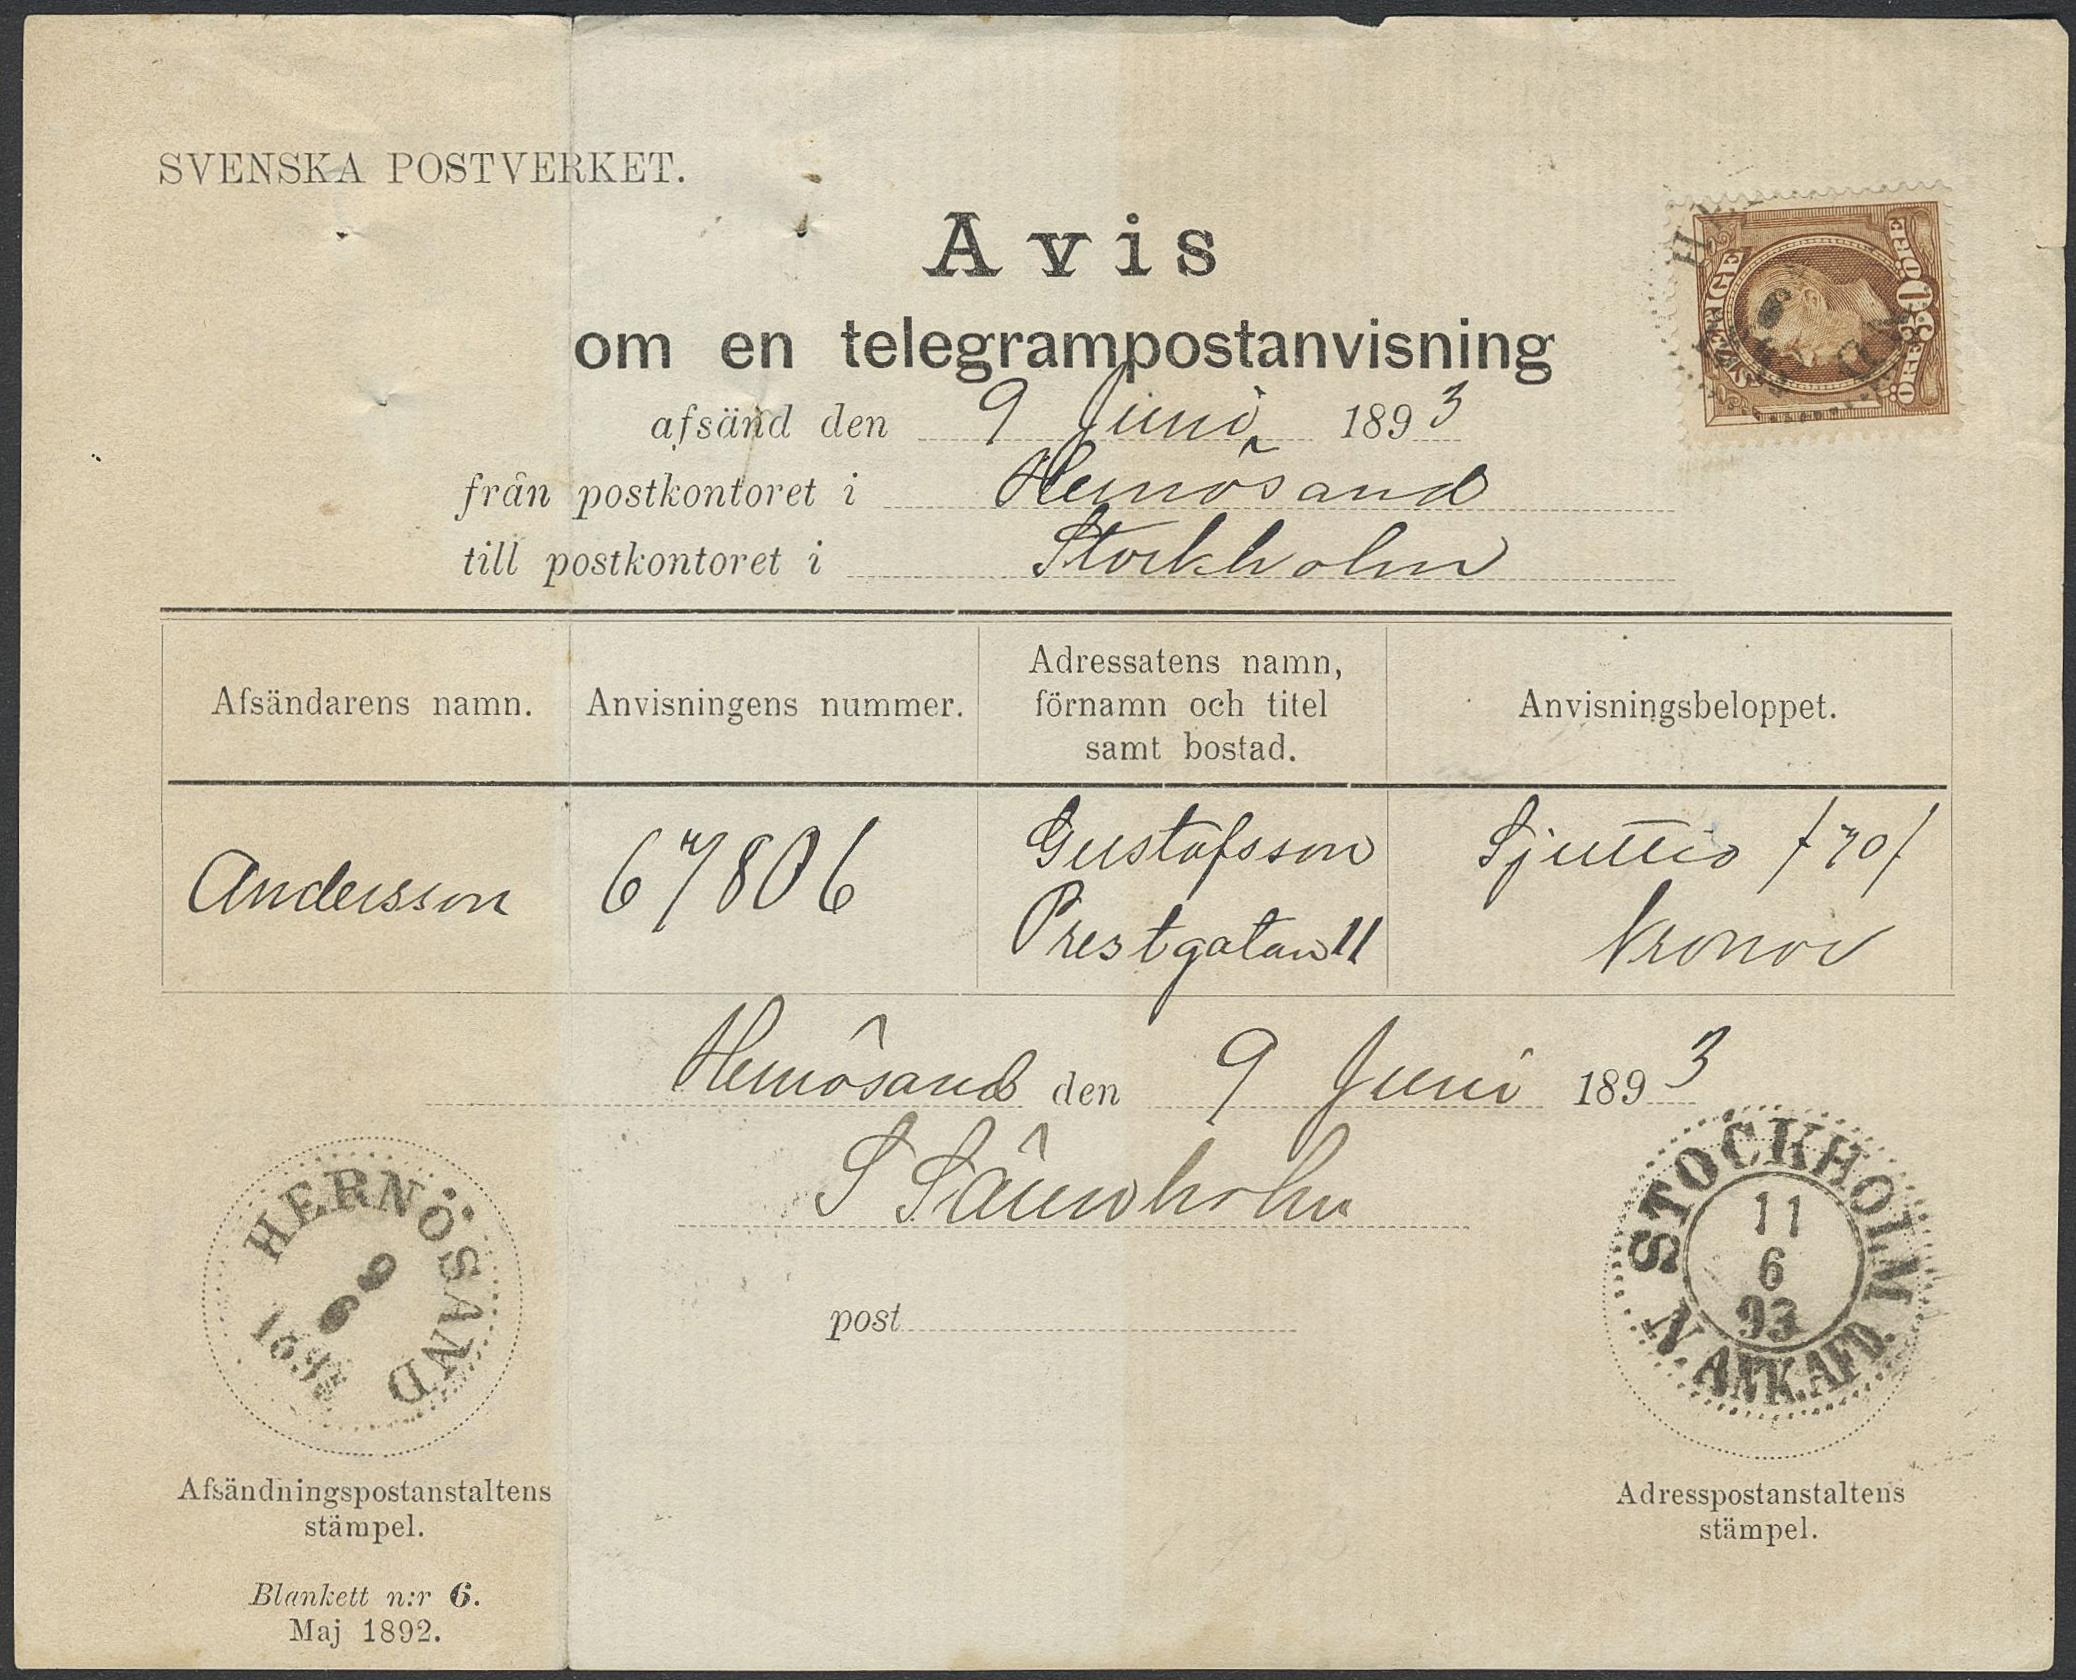 SVENSKA POSTVERKET.
Avis
om en telegrampostanvisning
SVERIGE
ÖRE 30 ÖRE
afsänd den 9 Juni 1893
från postkontoret i Hernösand
till postkontoret i Stockholm
Afsändarens namn.
Anvisningens nummer.
Adressatens namn,
förnamn och titel
samt bostad.
Anvisningsbeloppet.
Andersson
67806
Gustafsson
Prestgatan 11
Sjuttio /70/
Kronor
Hernösand den 9 Juni 1893
S
post
HERNÖSAND
9
6
STOCKHOLM
11
6
93
N. ANK. AFD.
Afsändningspostanstaltens
stämpel.
Adresspostanstaltens
stämpel.
Blankett n:r 6.
Maj 1892.